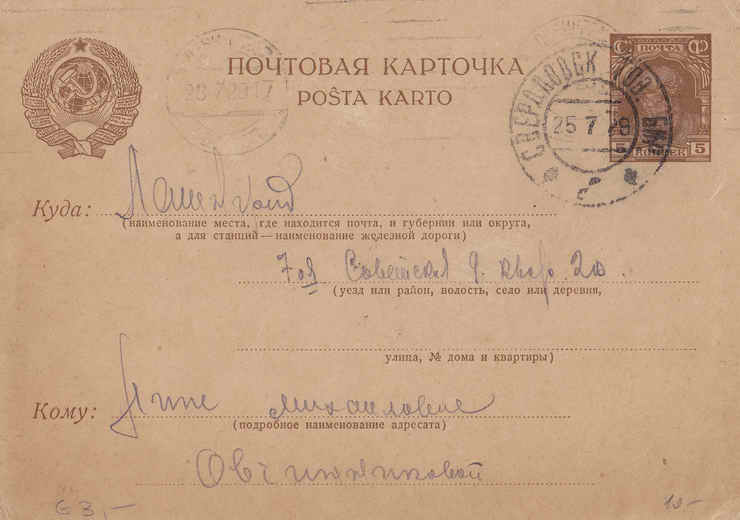 ПОЧТОВАЯ КАРТОЧКА
POŜTA KARTO
ПОЧТА
5 КОПЕЕК 5
СВЕРДЛОВСК
25 7 29
28.7.29.17
Куда:
(наименование места, где находится почта, и губернии или округа,
а для станций—наименование железной дороги)
7ая Советская 9. квар. 20.
(уезд или район, волость, село или деревня,
улица, № дома и квартиры)
Кому: Нине Михайловне
(подробное наименование адресата)
Овчинниковой
63,-
10-